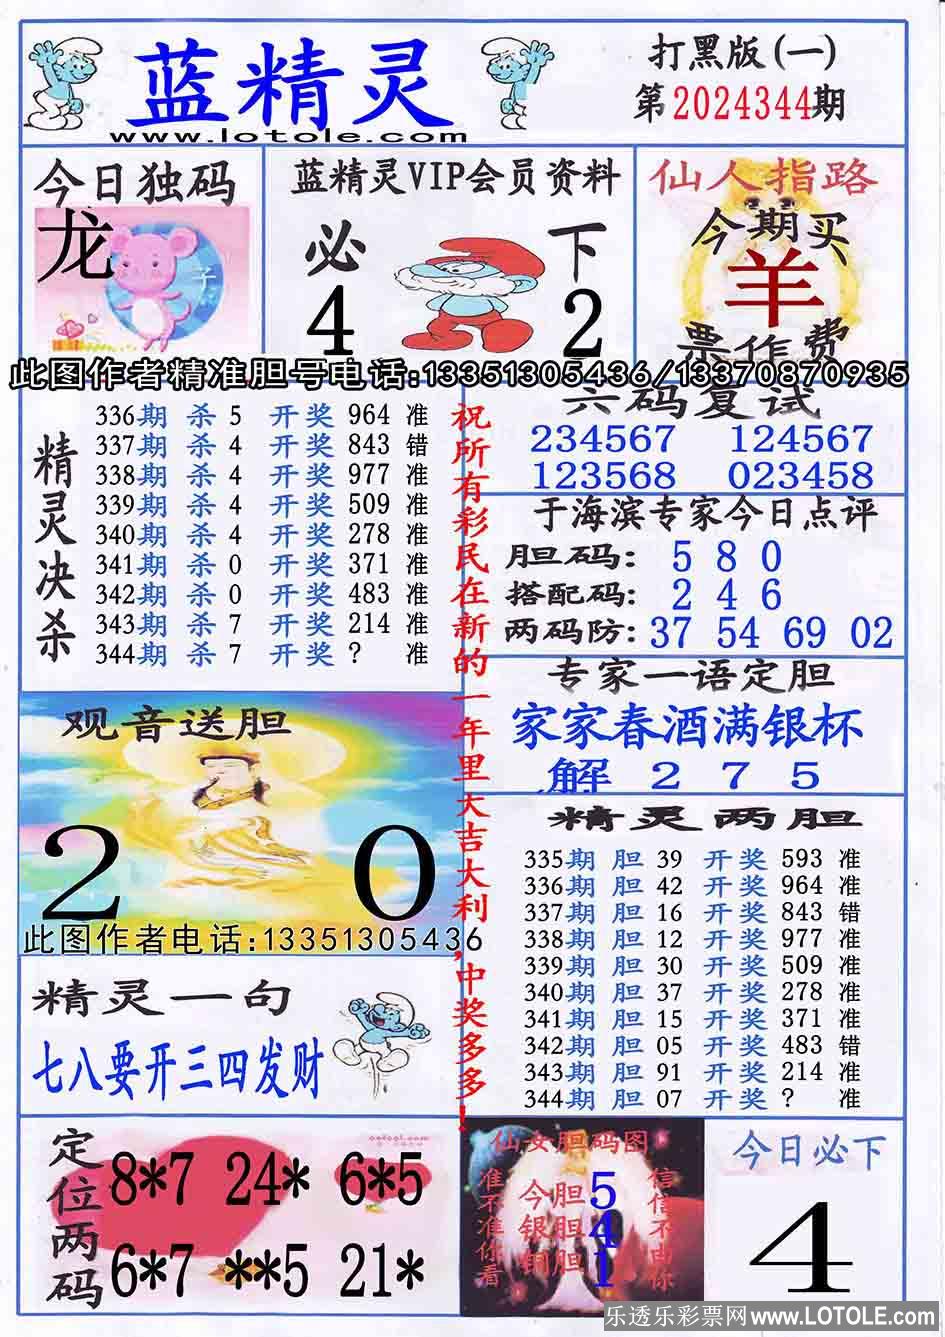 蓝精灵
www.lotole.com
打黑版(一)
第2024344期
今日独码
龙
子
蓝精灵VIP会员资料
必 下
4 2
仙人指路
今期买
羊
票作费
此图作者精准胆号电话:13351305436/13370870935
精灵决杀
336期 杀 5 开奖 964 准
337期 杀 4 开奖 843 错
338期 杀 4 开奖 977 准
339期 杀 4 开奖 509 准
340期 杀 4 开奖 278 准
341期 杀 0 开奖 371 准
342期 杀 0 开奖 483 准
343期 杀 7 开奖 214 准
344期 杀 7 开奖 ? 准
祝所有彩民在新的一年里大吉大利,中奖多多!
六码复试
234567 124567
123568 023458
于海滨专家今日点评
胆码: 5 8 0
搭配码: 2 4 6
两码防: 37 54 69 02
专家一语定胆
家家春酒满银杯
解 2 7 5
观音送胆
2 0
此图作者电话:13351305436
精灵两胆
335期 胆 39 开奖 593 准
336期 胆 42 开奖 964 准
337期 胆 16 开奖 843 错
338期 胆 12 开奖 977 准
339期 胆 30 开奖 509 准
340期 胆 37 开奖 278 准
341期 胆 15 开奖 371 准
342期 胆 05 开奖 483 错
343期 胆 91 开奖 214 准
344期 胆 07 开奖 ? 准
精灵一句
七八要开三四发财
定位两码
8*7 24* 6*5
6*7 **5 21*
仙女胆码图
准不准你看
今胆 5
银胆 4
铜胆 1
信信不由你
今日必下
4
乐透乐彩票网www.LOTOLE.com